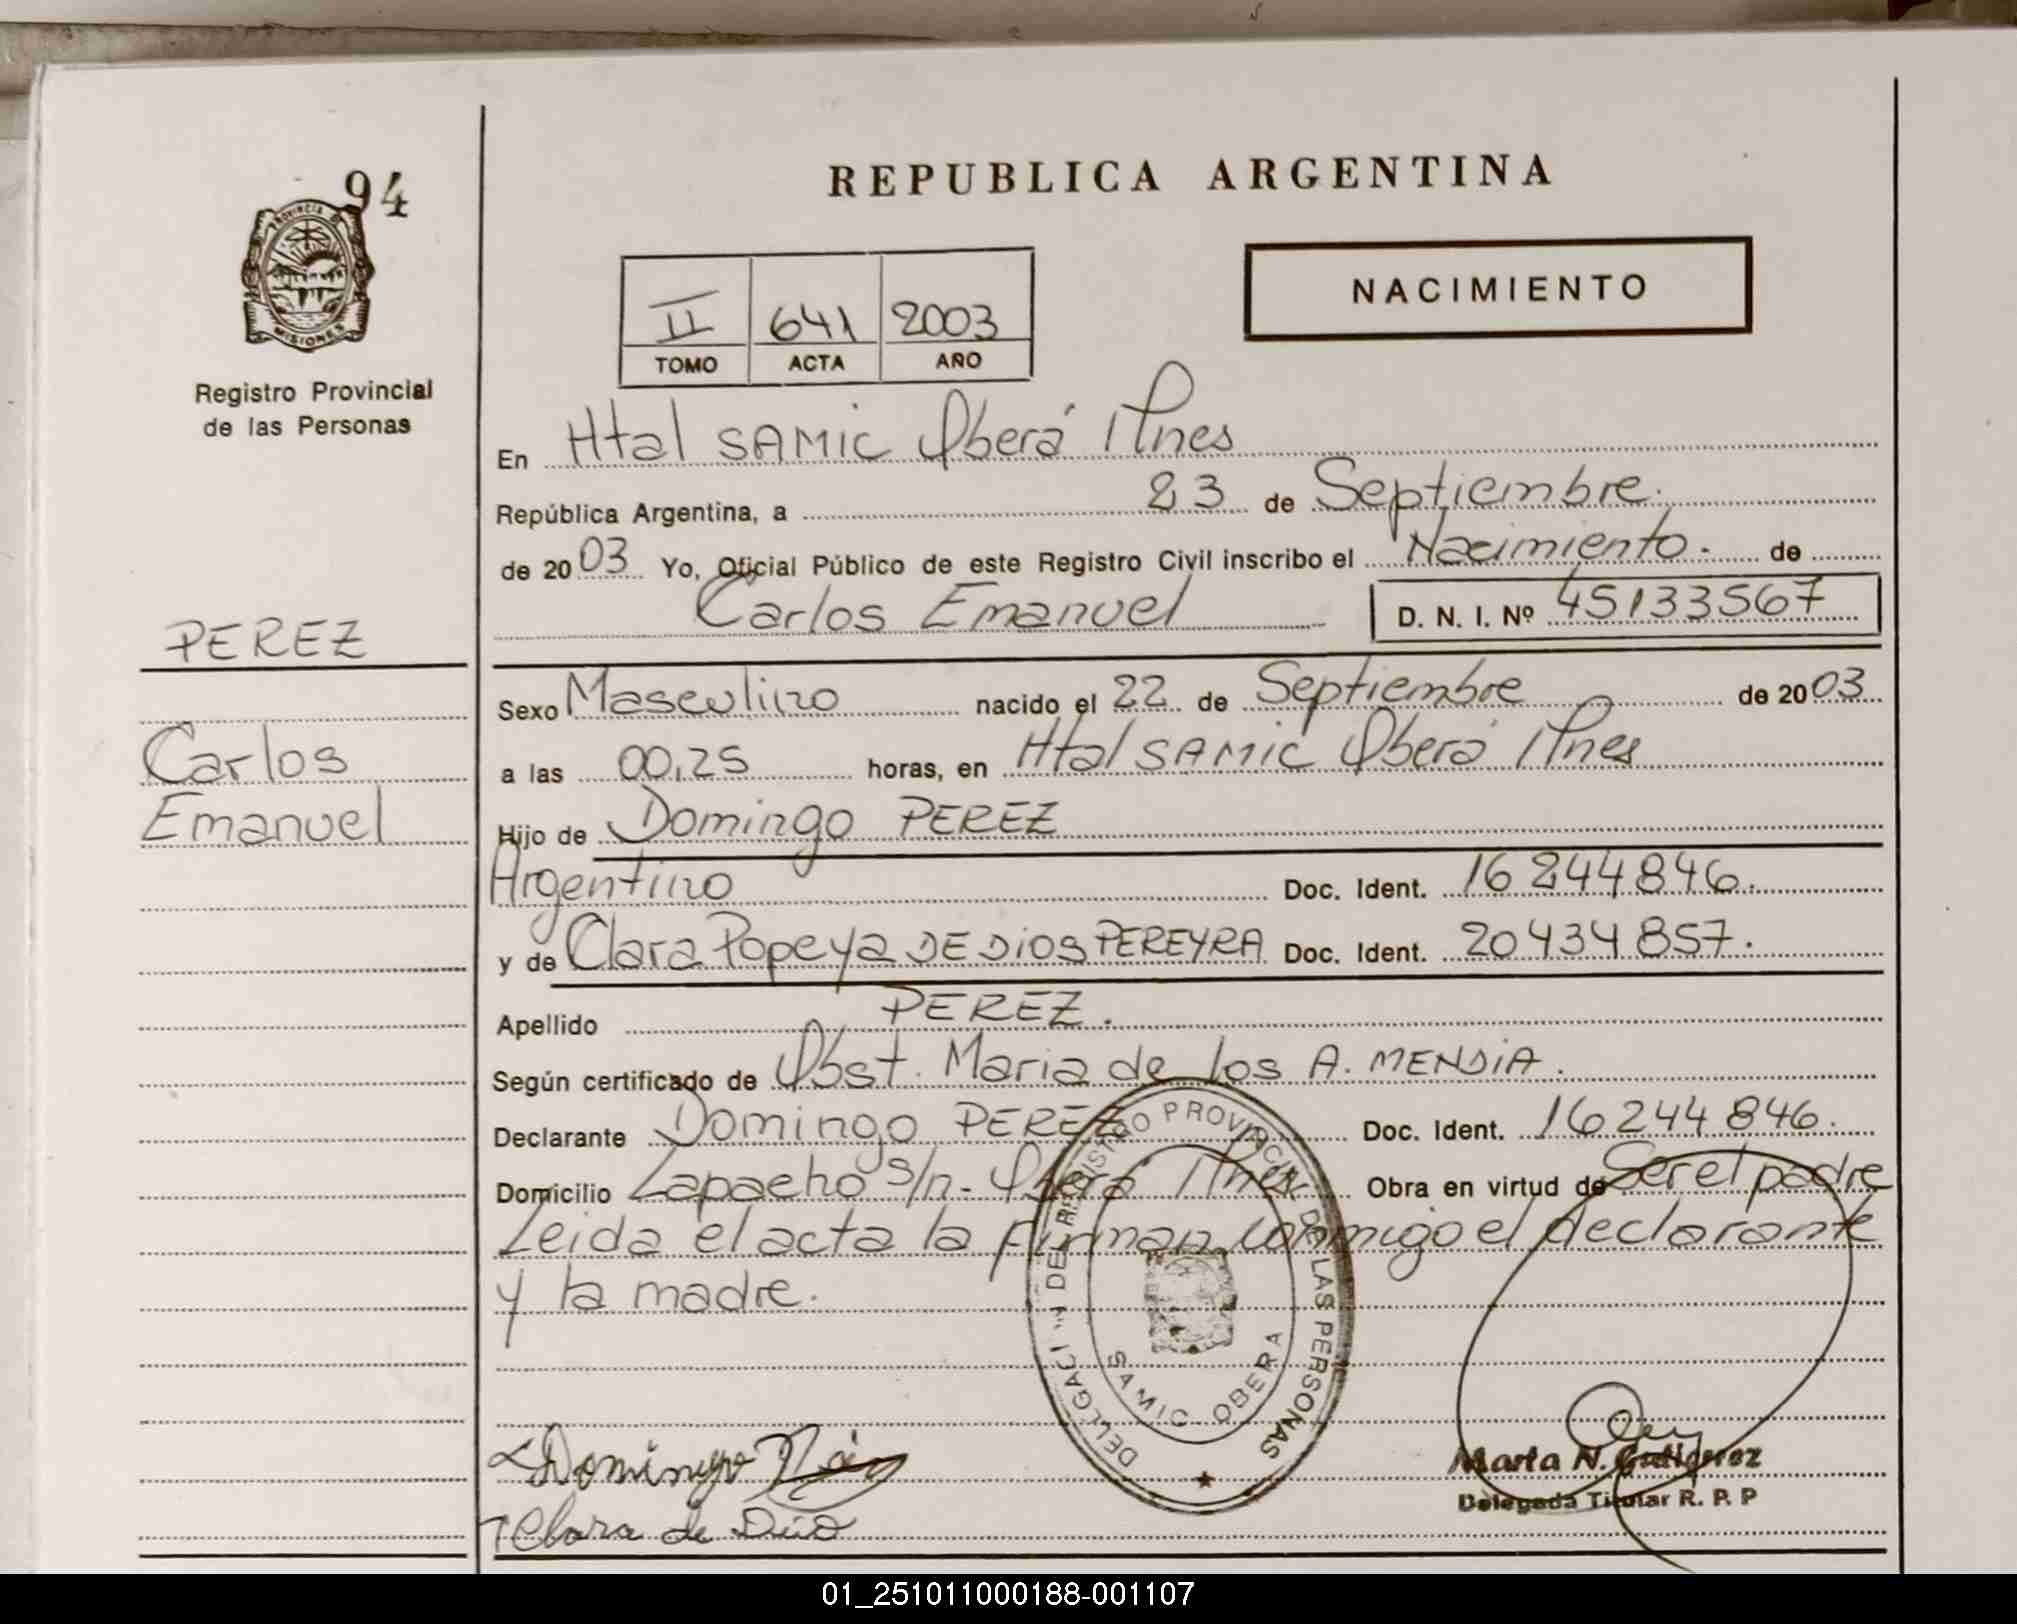 94
PROVINCIA DE
MISIONES
Registro Provincial
de las Personas
REPUBLICA ARGENTINA
NACIMIENTO
II 641 2003
TOMO ACTA AÑO
En Htal SAMIC Oberá Mnes
República Argentina, a 23 de Septiembre.
de 2003 Yo, Oficial Público de este Registro Civil inscribo el Nacimiento. de
Carlos Emanuel D. N. I. Nº 45133567
PEREZ
Carlos
Emanuel
Sexo Masculino nacido el 22 de Septiembre de 2003
a las 00,25 horas, en Htal SAMIC Oberá Mnes
Hijo de Domingo PEREZ
Argentino Doc. Ident. 16244846.
y de Clara Popeya DE DIOS PEREYRA Doc. Ident. 20434857.
Apellido PEREZ.
Según certificado de Obst. Maria de los A. MENDIA.
Declarante Domingo PEREZ Doc. Ident. 16244846.
Domicilio Lapacho s/n - Oberá Mnes Obra en virtud de Ser el padre
Leida el acta la firman conmigo el declarante
y la madre.
DELGACI N DEL REGISTRO PROVINCIAL DE LAS PERSONAS
SAMIC OBERA
Domingo
Clara de Dios
Marta N. Gutierrez
Delegada Titular R. P. P
01_251011000188-001107